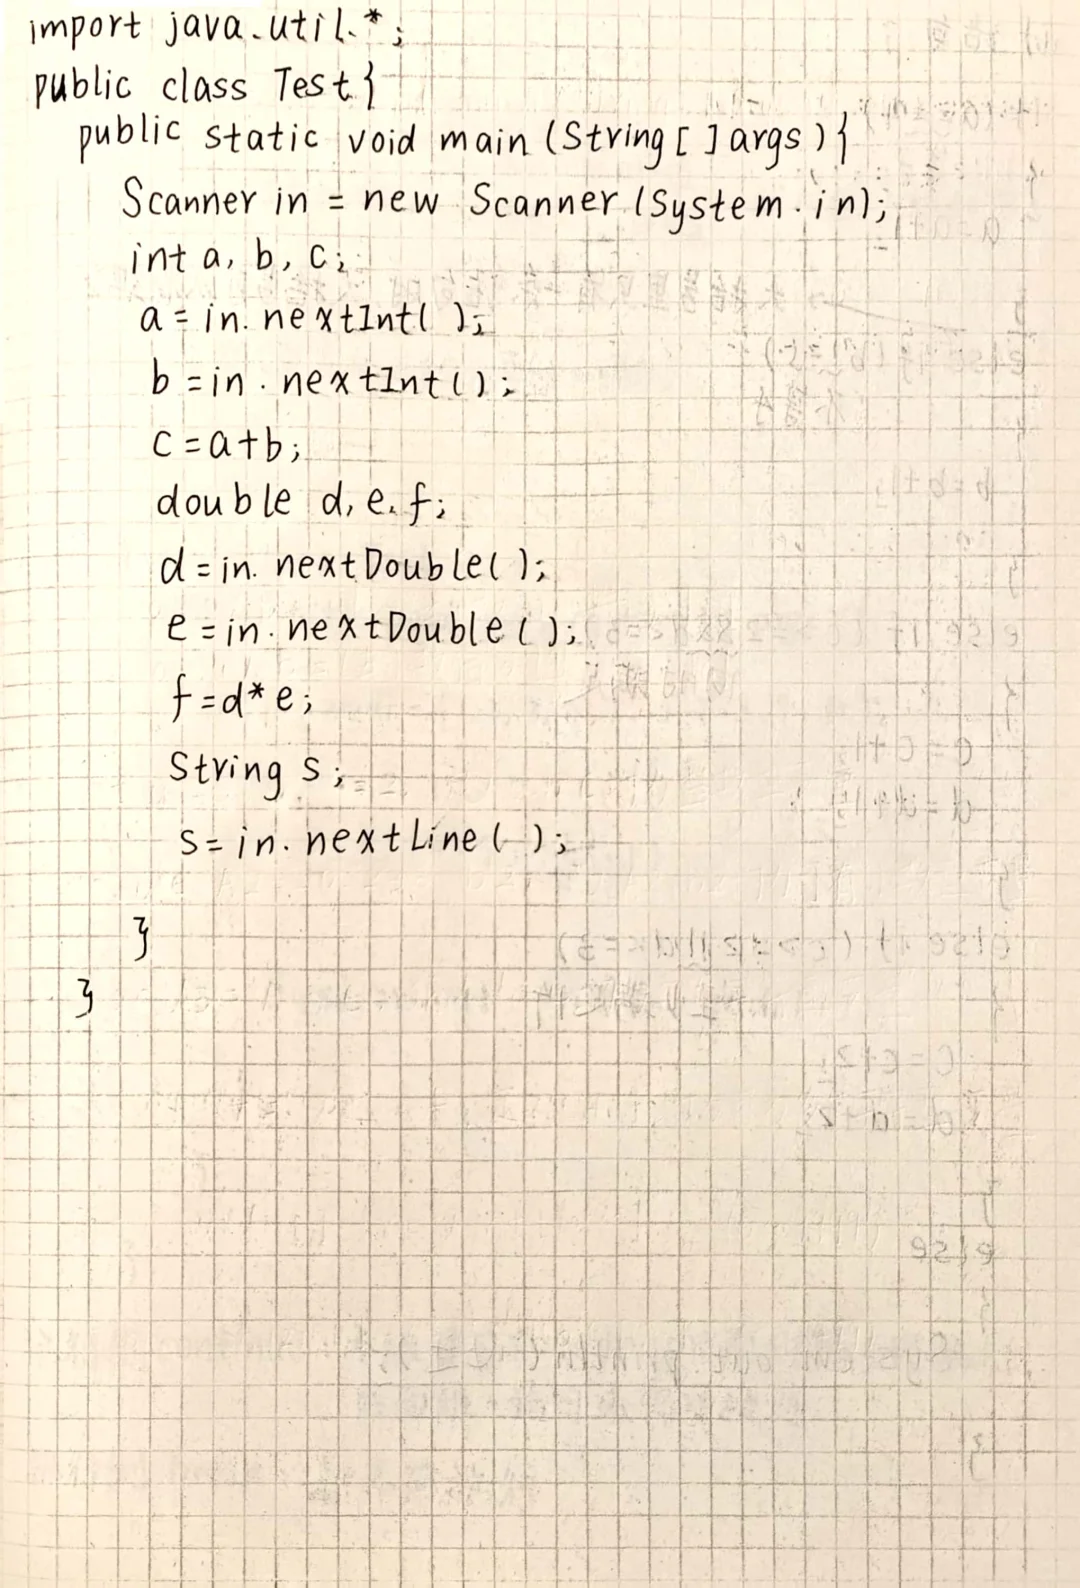 import java.util.*;
public class Test{
public static void main (String[ ]args){
Scanner in = new Scanner (System.in);
int a, b, c;
a = in.nextInt( );
b = in.nextInt();
c = a+b;
double d, e, f;
d = in.nextDouble( );
e = in.nextDouble( );
f = d* e;
String s;
s = in.nextLine( );
}
}